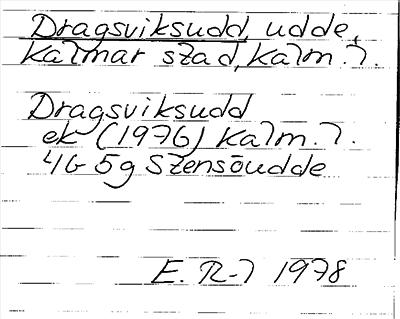 Dragsviksudd, udde,
Kalmar stad, Kalm. l.
Dragsviksudd
ek (1976) Kalm. l.
4G 5g Stensöudde
E. R-l 1978